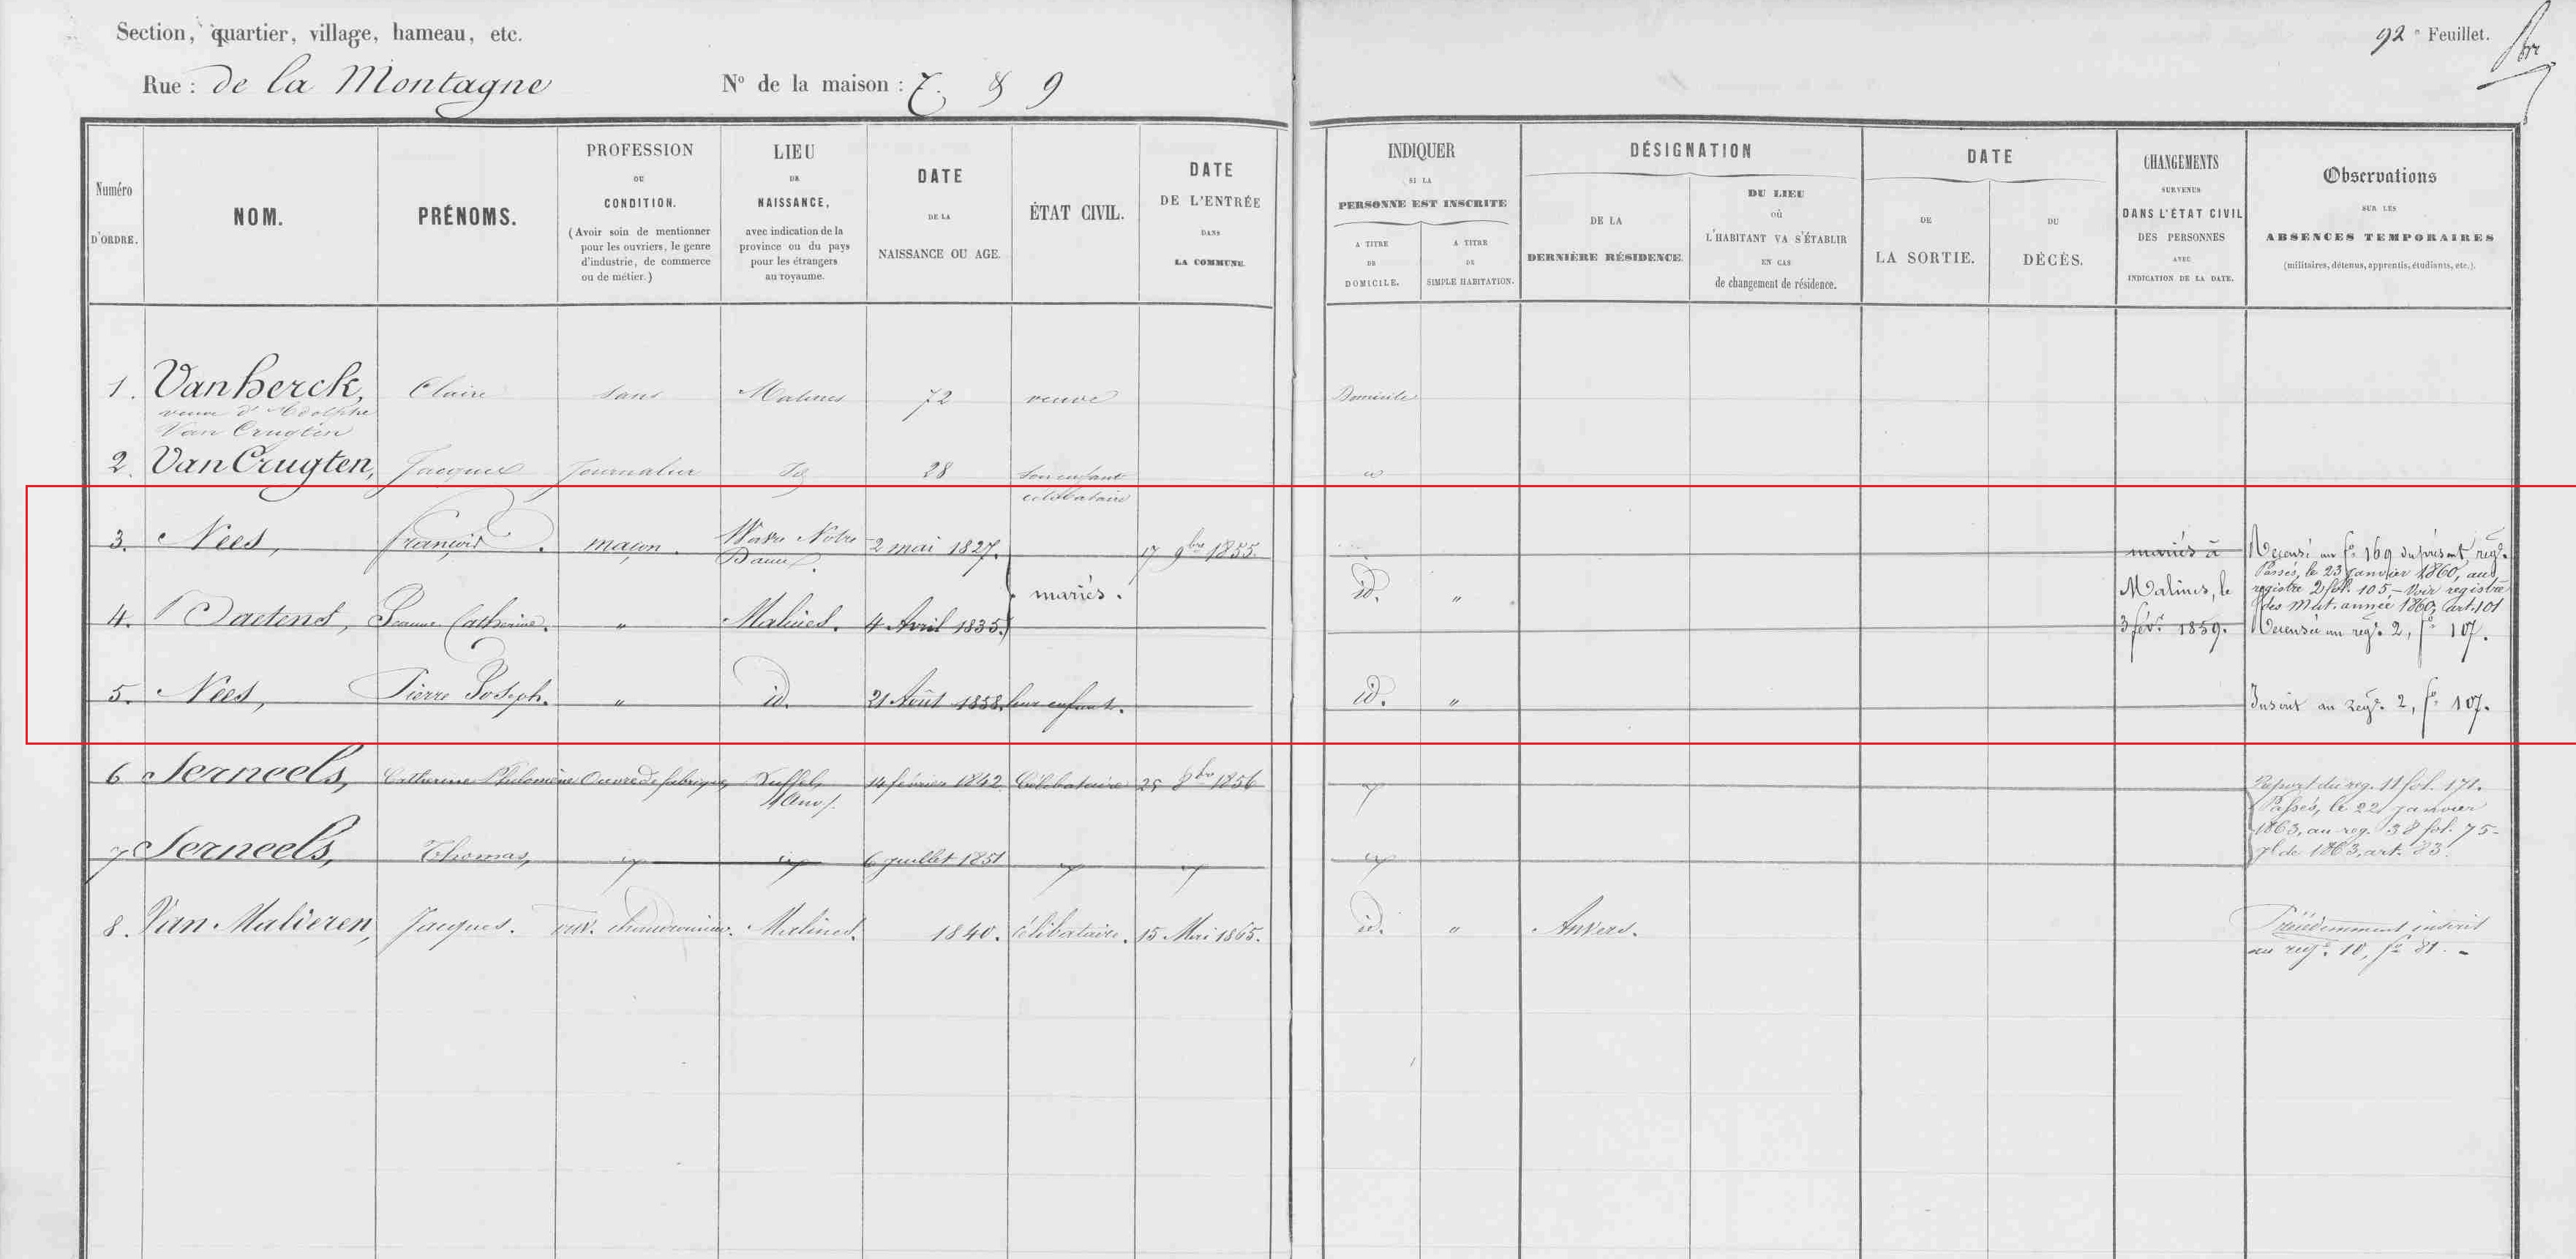 Section, quartier, village, hameau, etc.
92e Feuillet.
Rue : de la Montagne Nº de la maison : 7. & 9
Numéro
D'ORDRE.
NOM.
PRÉNOMS.
PROFESSION
OU
CONDITION.
(Avoir soin de mentionner
pour les ouvriers, le genre
d'industrie, de commerce
ou de métier.)
LIEU
DE
NAISSANCE,
avec indication de la
province ou du pays
pour les étrangers
au royaume.
DATE
DE LA
NAISSANCE OU AGE.
ÉTAT CIVIL.
DATE
DE L'ENTRÉE
DANS
LA COMMUNE.
INDIQUER
SI LA
PERSONNE EST INSCRITE
A TITRE
DE
DOMICILE.
A TITRE
DE
SIMPLE HABITATION.
DÉSIGNATION
DE LA
DERNIÈRE RÉSIDENCE.
DU LIEU
où
L'HABITANT VA S'ÉTABLIR
EN CAS
de changement de résidence.
DATE
DE
LA SORTIE.
DU
DÉCÈS.
CHANGEMENTS
SURVENUS
DANS L'ÉTAT CIVIL
DES PERSONNES
AVEC
INDICATION DE LA DATE.
Observations
SUR LES
ABSENCES TEMPORAIRES
(militaires, détenus, apprentis, étudiants, etc.).
1. Van herck, Claire sans Malines 72 veuve Domicile
veuve d'Adolphe
Van Crugten
2. Van Crugten, Jacques Journalier Id 28 son enfant
célibataire
3. Nees, François. maçon. Wavre Notre 2 mai 1827. 17 9bre 1855 mariés à Recensé au fo 169 du présent regre.
Dame. Passés, le 23 janvier 1860, au
mariés. id. " Malines, le registre 2 fol. 105. Voir registre
des Mut. année 1860, art. 101
4. Daetens, Jeanne Catherine. " Malines. 4 Avril 1835. 3 févr. 1859. Recensée au regre. 2, fo 107.
5. Nees, Pierre Joseph. " id. 21 Août 1858. leur enfant. id. " Inscrit au Regre. 2, fo 107.
6 Serneels, Catherine Philomène Ouvre de fabrique, Duffel, 14 février 1842 Célibataire 25 8bre 1856 Report du reg. 11 fol. 171.
(Anv). Passés, le 22 janvier
1863, au reg. 38 fol. 75 -
7 Serneels, Thomas, 6 juillet 1851 de 1863, art. 83.
8. Van Malderen, Jacques. ouv. chaudronnier. Malines. 1840. célibataire. 15 Mai 1865. id. " Anvers. Précédemment inscrit
au regre. 10, fo 81. -